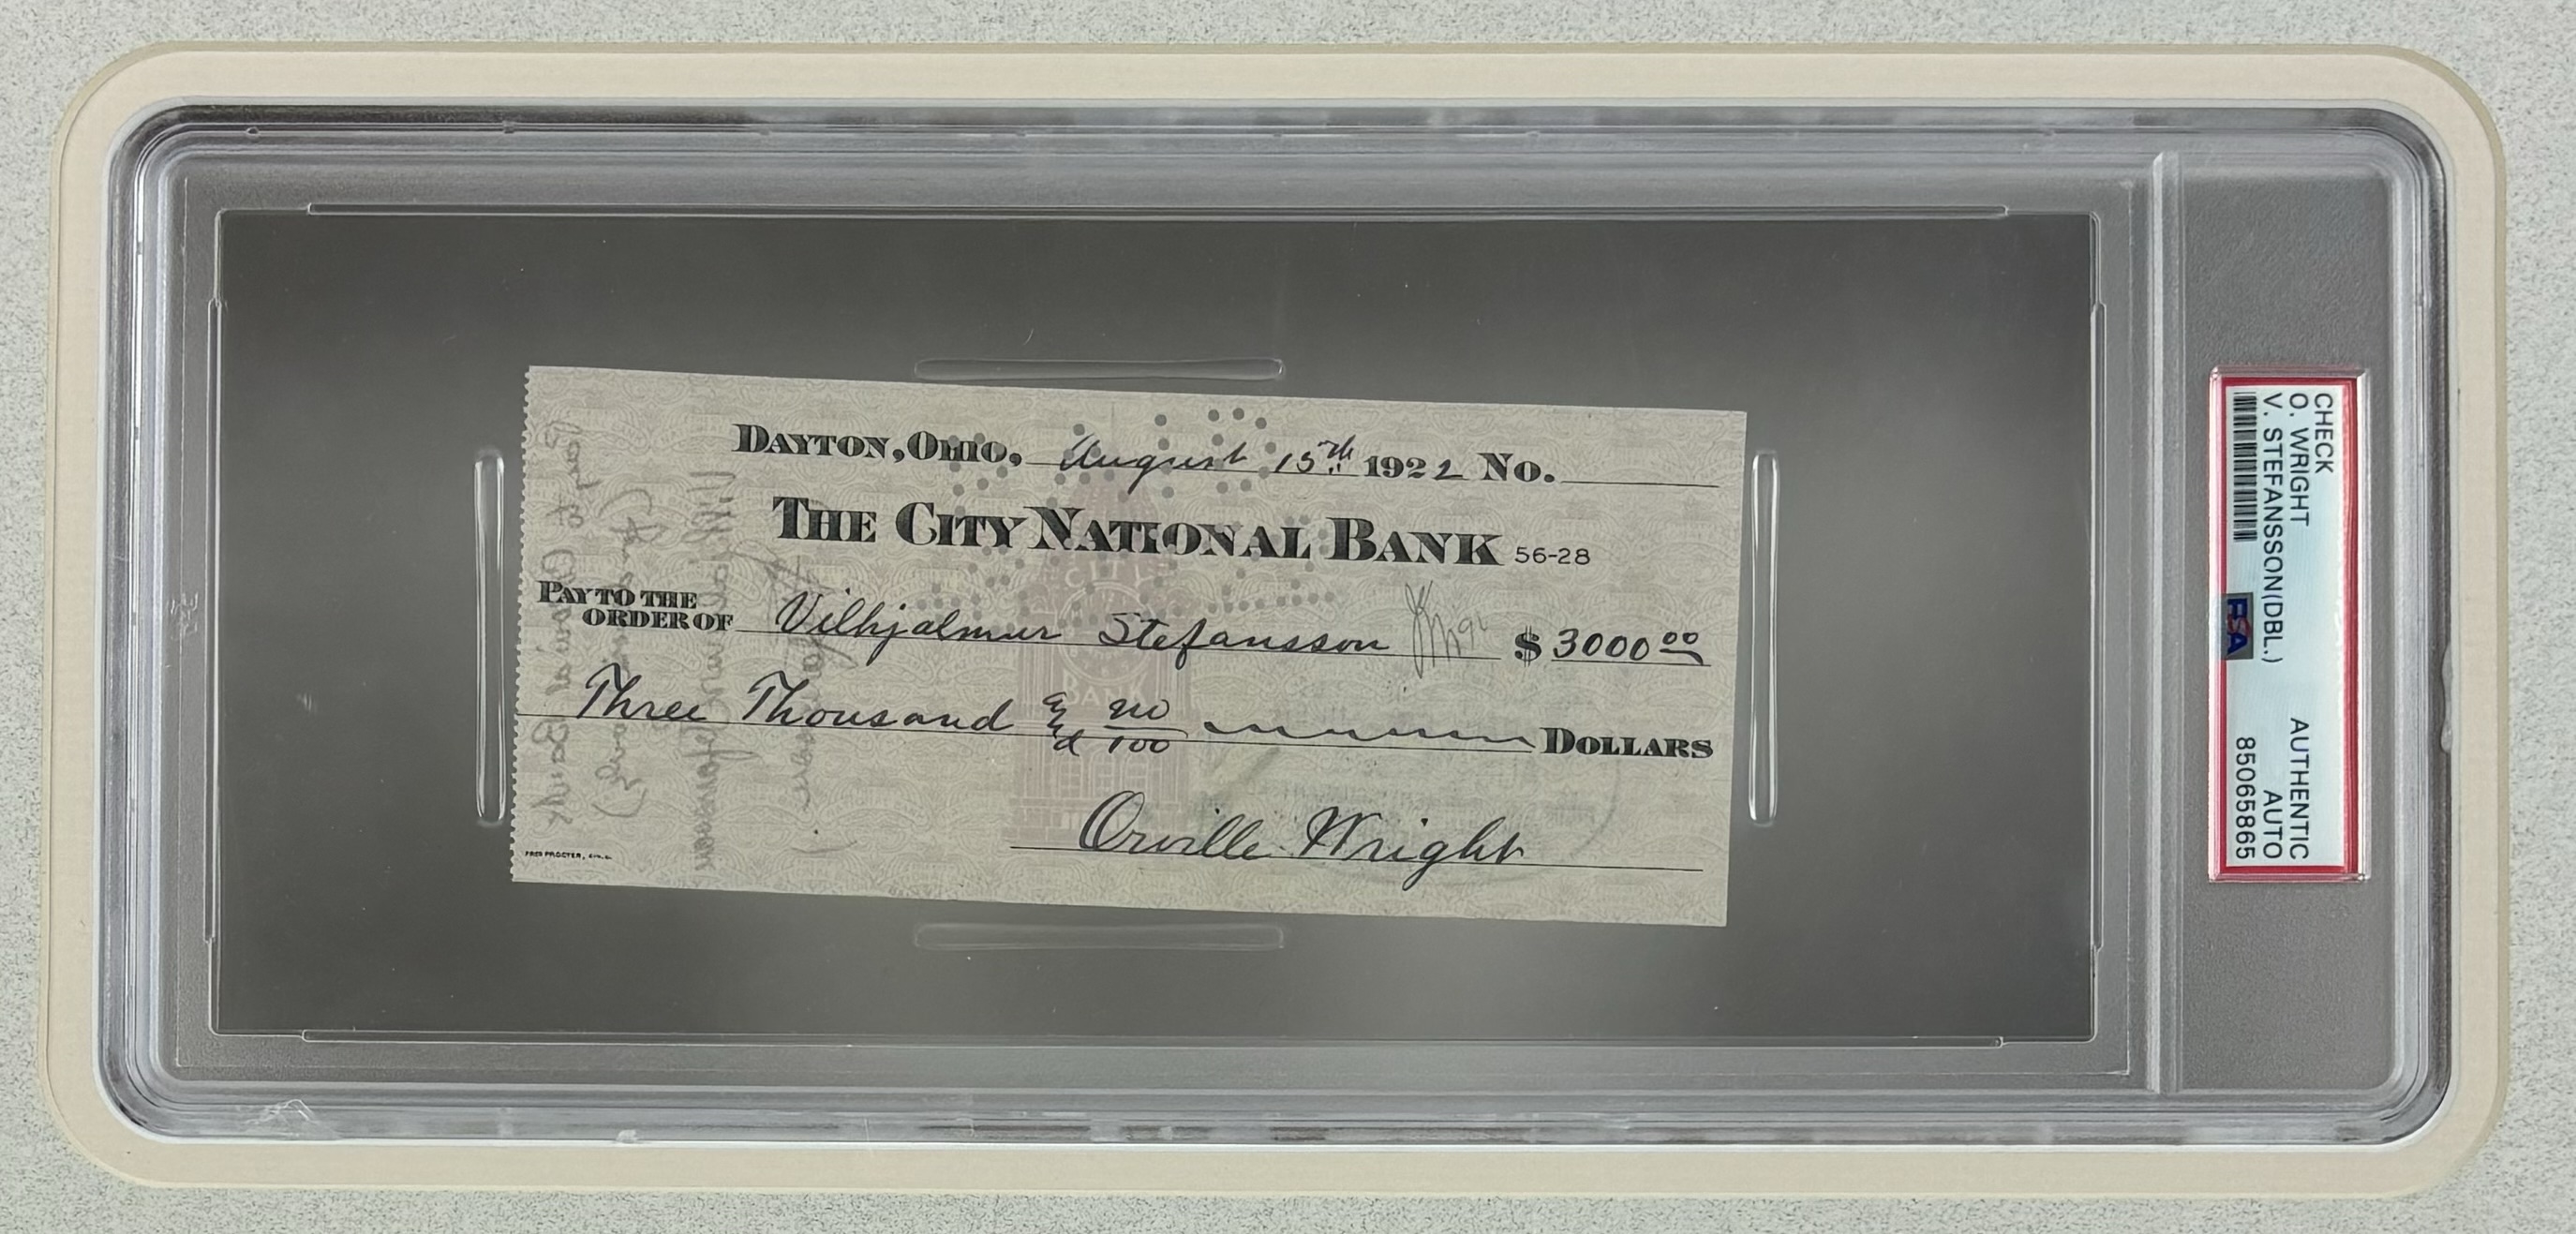 DAYTON, OHIO, August 15th 1922 No.
THE CITY NATIONAL BANK 56-28
PAY TO THE
ORDER OF Vilhjalmur Stefansson $ 3000 00
Three Thousand & no/100 DOLLARS
Orville Wright
CITY
BANK
CHECK
O. WRIGHT AUTHENTIC
V. STEFANSSON(DBL.) AUTO
PSA 85065865